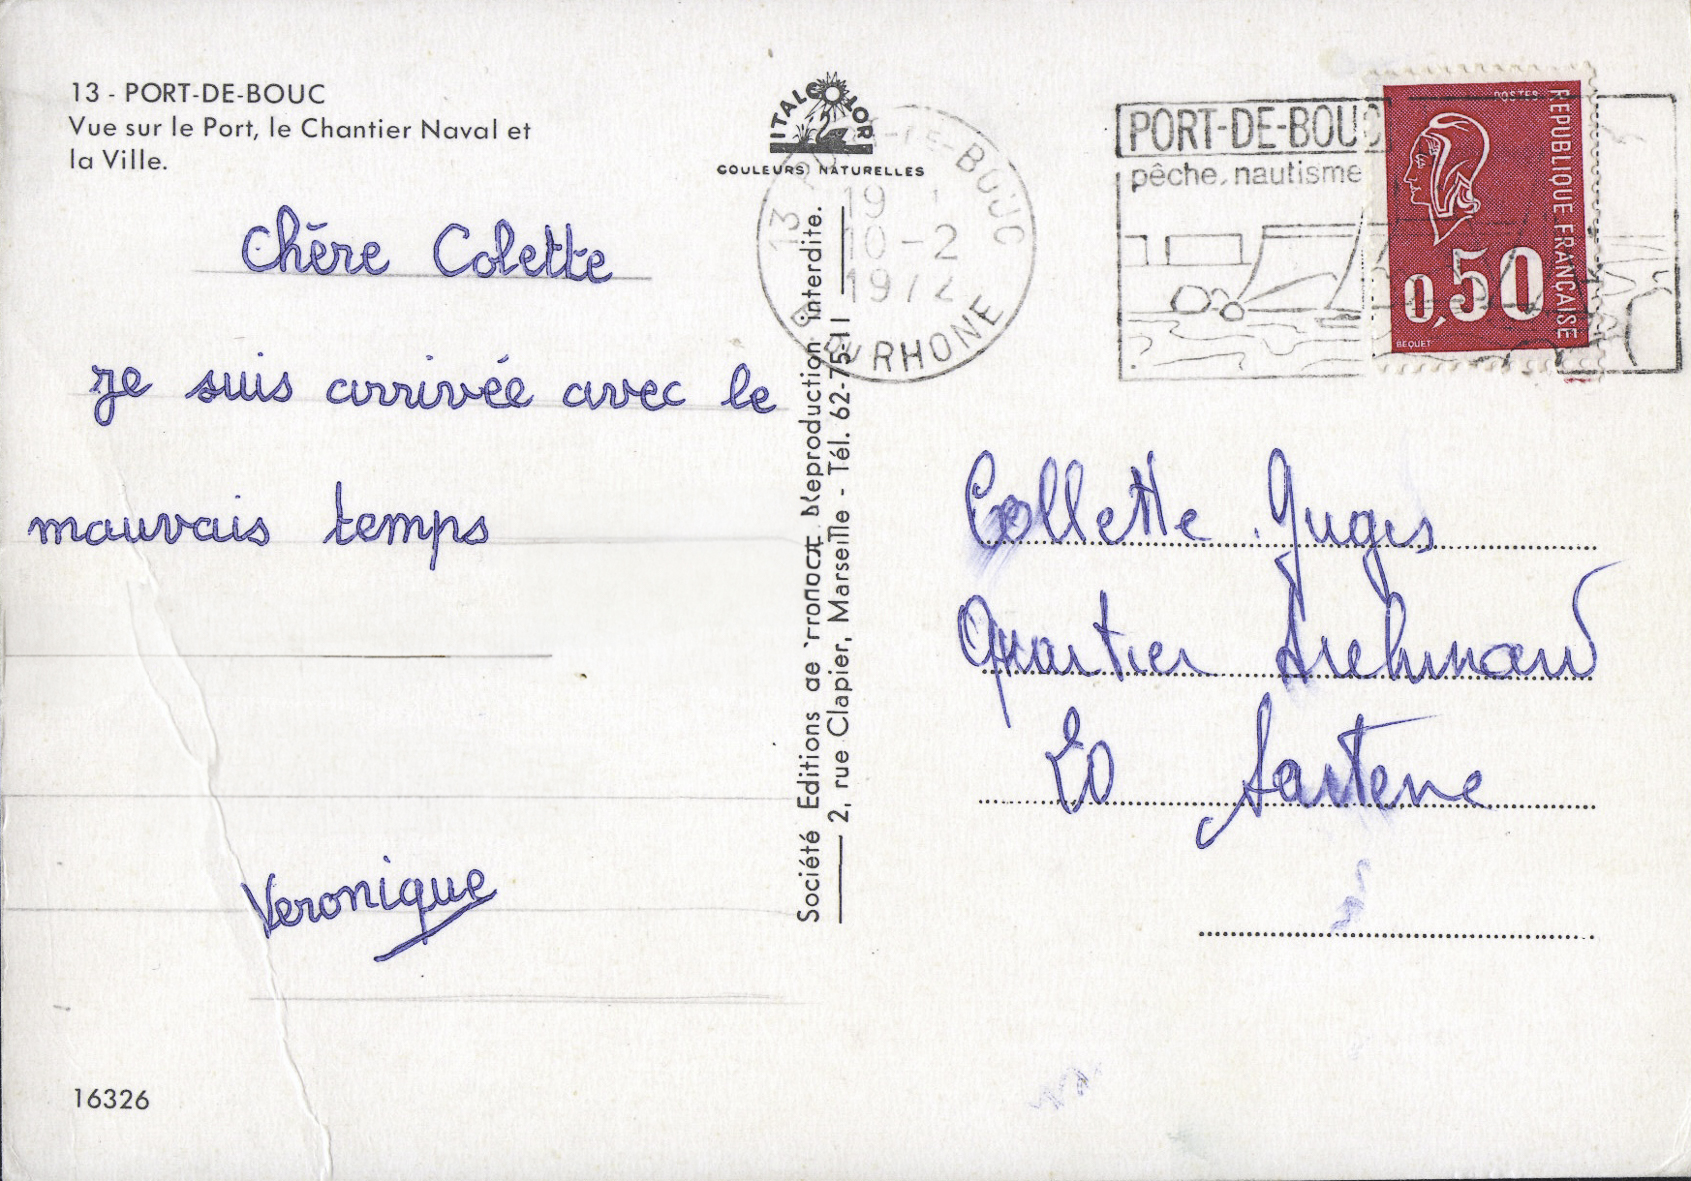 13 - PORT-DE-BOUC
Vue sur le Port, le Chantier Naval et
la Ville.
Chère Colette
Je suis arrivée avec le
mauvais temps
Veronique
16326
ITALCOLOR
COULEURS NATURELLES
Société Editions de Reproduction interdite.
2, rue Clapier, Marseille - Tél. 62-75-11
13 -DE-BOUC
19
10 - 2
1972
B DU RHONE
PORT-DE-BOUC
pêche, nautisme
POSTES
REPUBLIQUE FRANÇAISE
0,50
BEQUET
Collette
Quartier
20 Sartene